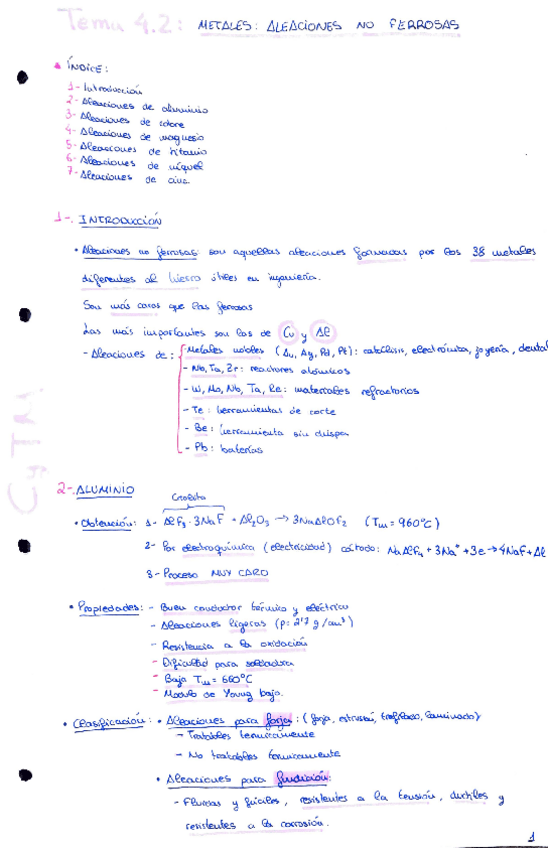 Tema 4.2: METALES: ALEACIONES NO FERROSAS
ÍNDICE:
1- Introducción
2- Aleaciones de aluminio
3- Aleaciones de cobre
4- Aleaciones de magnesio
5- Aleaciones de titanio
6- Aleaciones de níquel
7- Aleaciones de cinc
1-. INTRODUCCIÓN
• Aleaciones no ferrosas: son aquellas aleaciones formadas por los 38 metales
diferentes al hierro útiles en ingeniería.
Son más caras que las ferrosas
Las más importantes son las de Cu y Al
- Aleaciones de: - Metales nobles (Au, Ag, Pd, Pt): catálisis, electrónica, joyería, dental
- Nb, Ta, Zr: reactores atómicos
- W, Mo, Nb, Ta, Re: materiales refractarios
- Te: herramientas de corte
- Be: herramienta sin chispa
- Pb: baterías
CyTM
2-. ALUMINIO
Criolita
• Obtención: 1- AlF₃·3NaF + Al₂O₃ → 3NaAlOF₂ (Tm = 960°C)
2- Por electroquímica (electricidad) cátodo: NaAlF₄ + 3Na⁺ + 3e → 4NaF + Al
3- Proceso MUY CARO
• Propiedades: - Buen conductor térmico y eléctrico
- Aleaciones ligeras (ρ: 2'7 g/cm³)
- Resistencia a la oxidación
- Dificultad para soldadura
- Baja Tm = 660°C
- Modulo de Young bajo.
• Clasificación: • Aleaciones para forja: (forja, extrusión, trefilado, laminado)
- Tratables térmicamente
- No tratables térmicamente
• Aleaciones para fundición:
- Fluidas y fáciles, resistentes a la tensión, dúctiles y
resistentes a la corrosión.
1